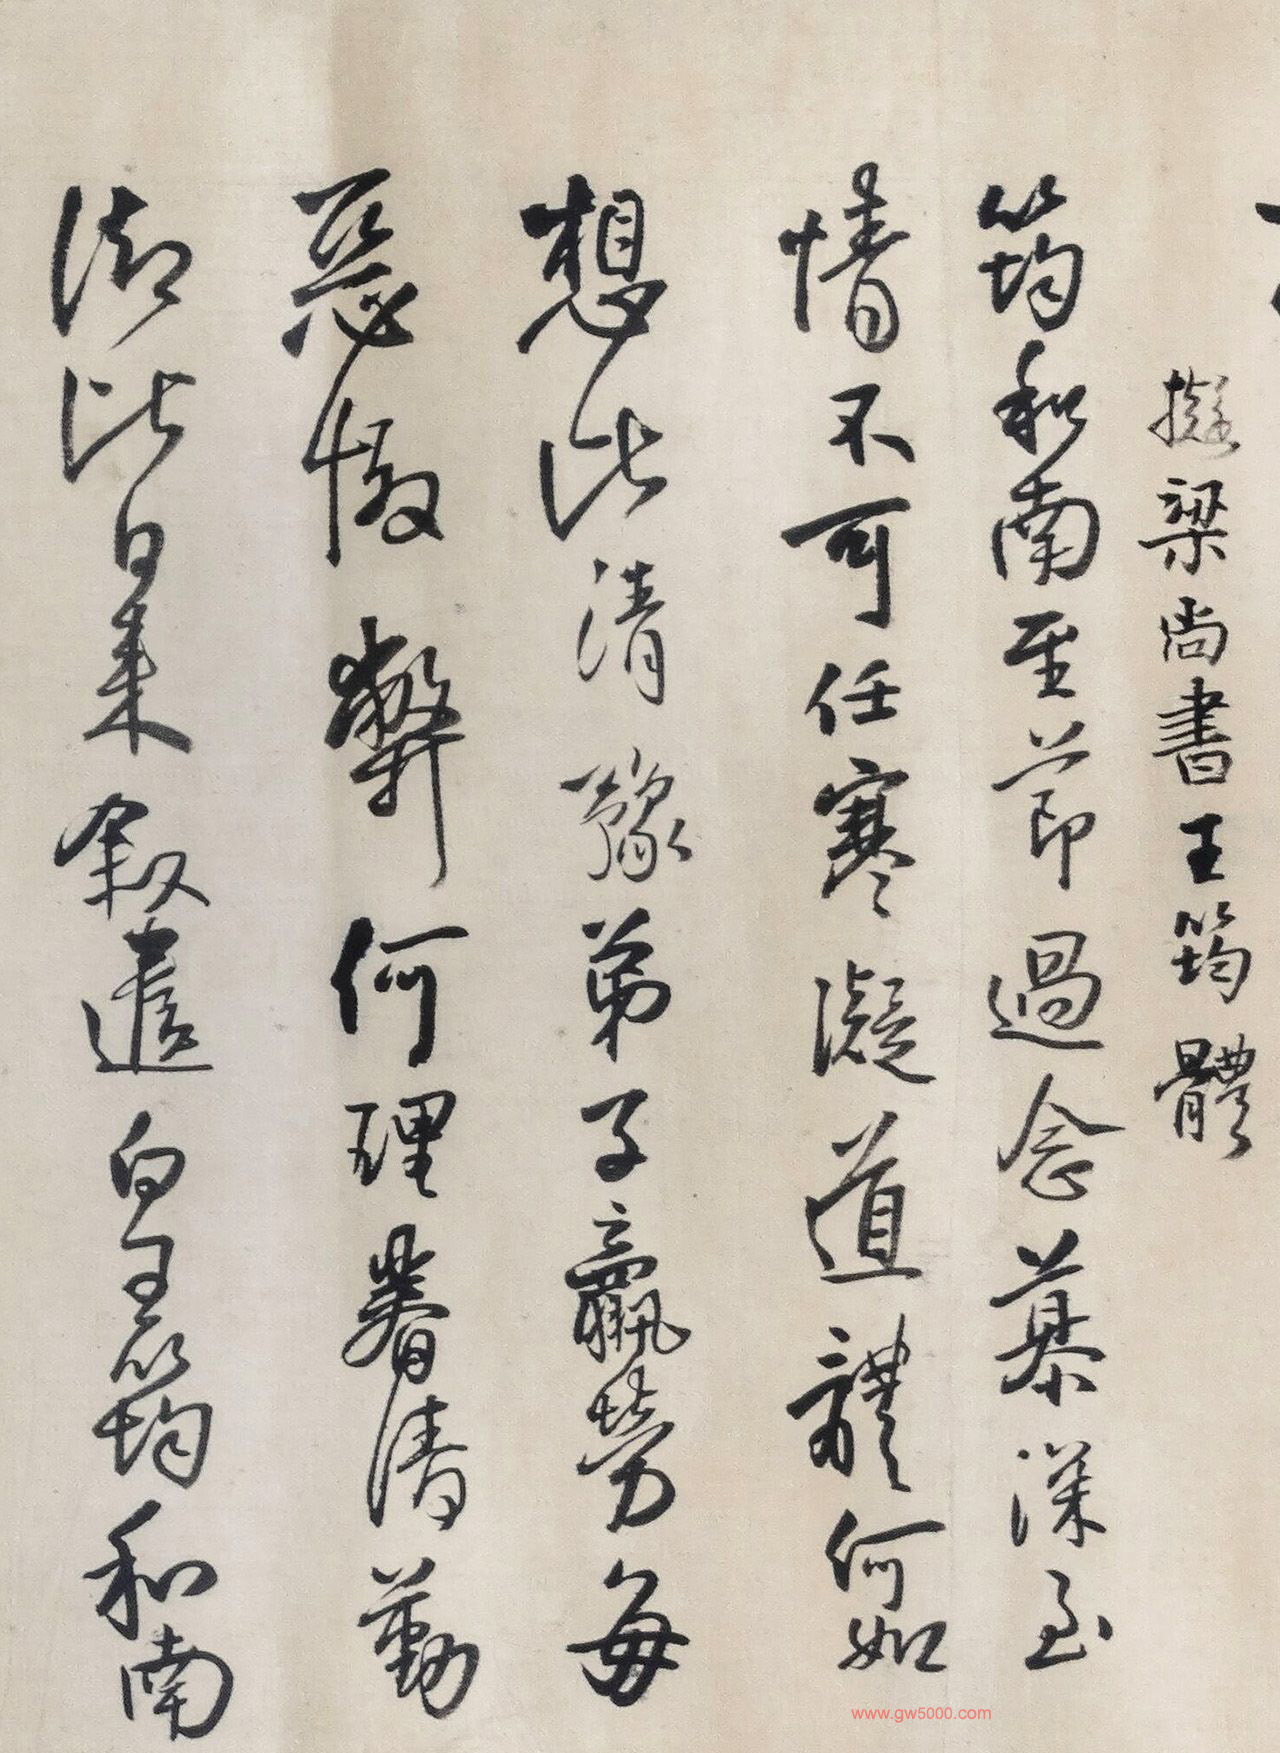 擬梁尚書王筠體
筠和南至節過念慕深至
情不可任寒凝道體何如
想比清豫弟子羸勞每
惡慠弊何理眷清勤
御比日来叙遣白王筠和南
www.gw5000.com